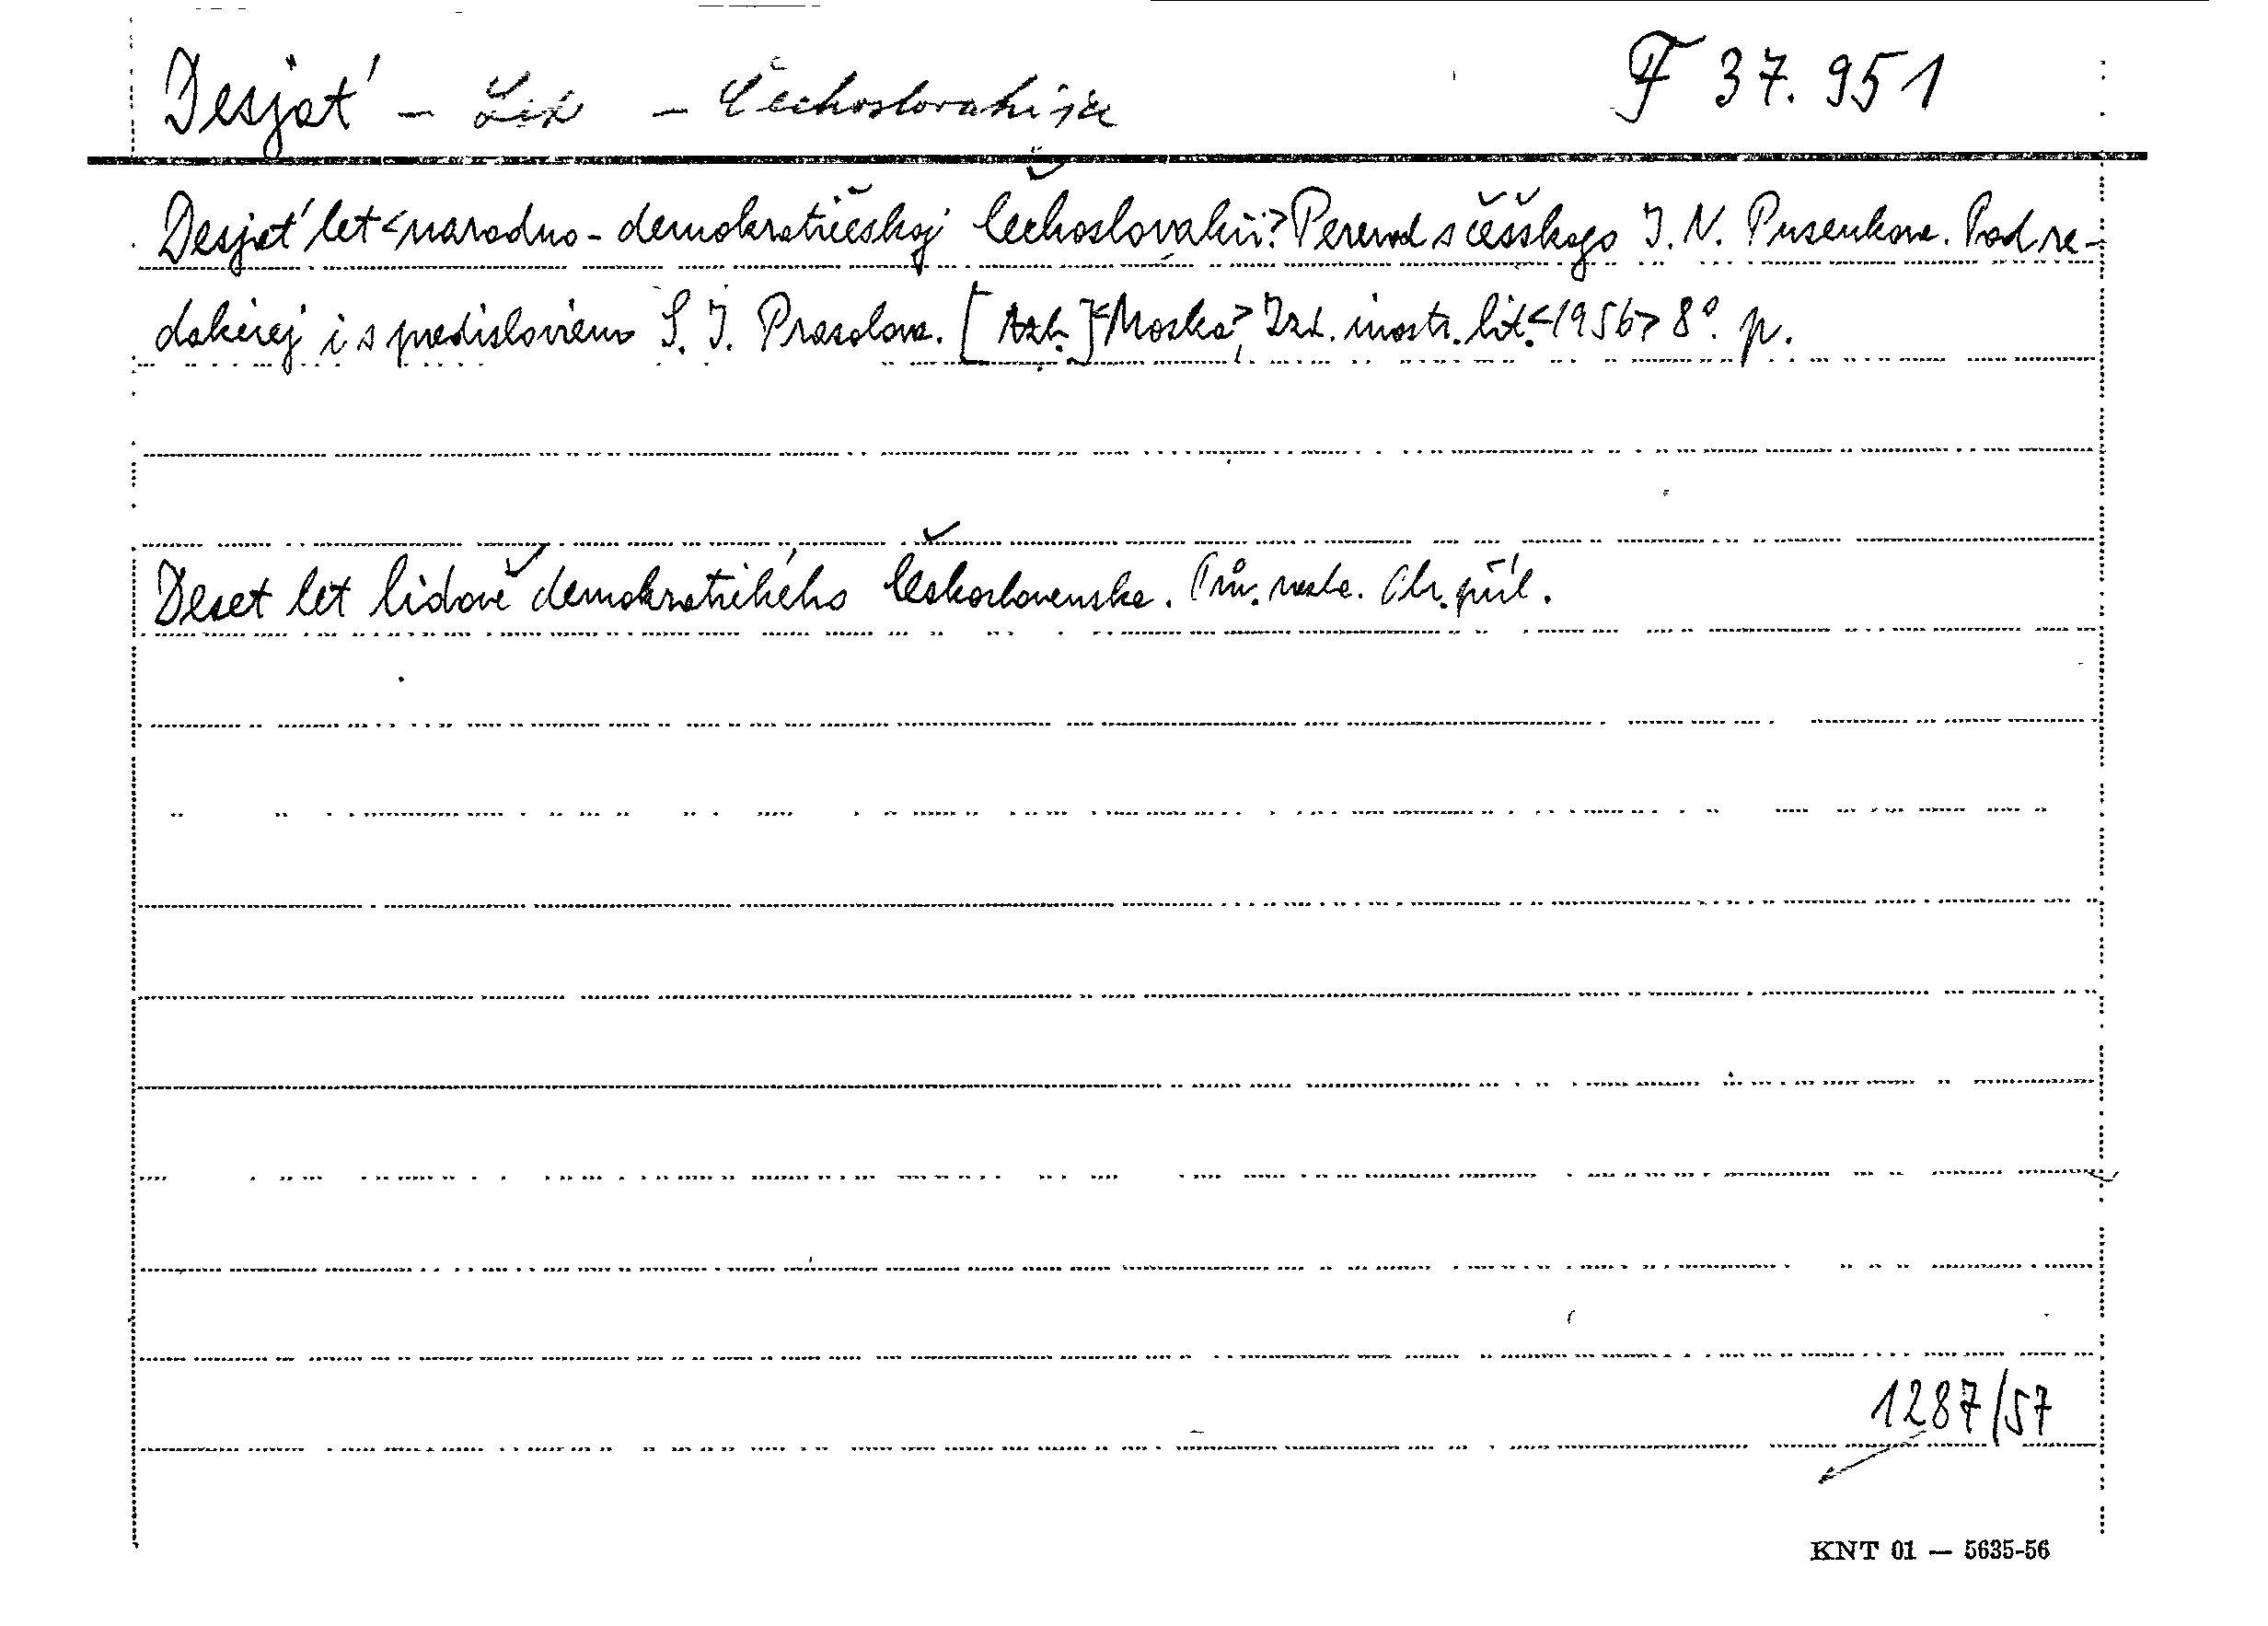 Desjať - Let - Čechoslovakija F 37.951
Desjať let <narodno-demokratičeskoj Čechoslovakii.> Perevod s češskogo I. N. Pusenkova. Pod re-
dakciej i s predisloviem S. I. Prasolova. [Azb.] <Moskva>, Izd. inostr. lit. <1956> 8°. p.
Deset let lidově demokratického Československa. Čb. příl.
1287/57
KNT 01 — 5635-56